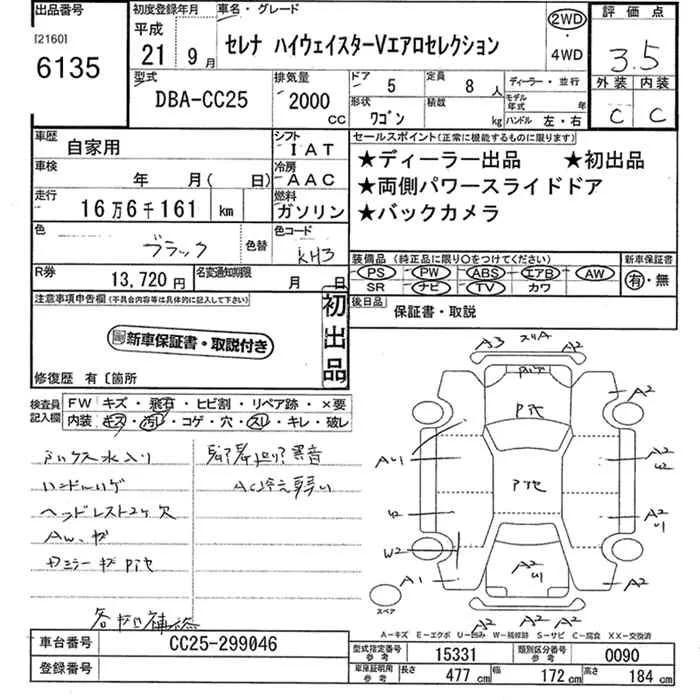 出品番号 初度登録年月 車名・グレード 2WD 評価点
[2160] 平成 ・
6135 21年 9月 セレナ ハイウェイスターVエアロセレクション 4WD 3.5
型式 排気量 ドア 5 定員 8人 ディーラー・並行 外装 内装
DBA-CC25 2000 CC 形状 ワゴン 積載 kg モデル年式 年 C C
ハンドル 左・右
車歴 自家用 シフト IAT セールスポイント(正常に機能するものに限ります)
車検 年 月( 日) 冷房 AAC ★ディーラー出品 ★初出品
走行 16万6千161 km 燃料 ガソリン ★両側パワースライドドア
★バックカメラ
色 ブラック 色替 色コード KH3
装備品(純正品に限り○をつけてください) 新車保証書
PS PW ABS エアB AW 有・無
SR ナビ TV カワ
R券 13,720円 名変通知期限 月 日
後日品 保証書・取説
注意事項申告欄(不具合内容等は具体的に記入して下さい) 初出品
新車保証書・取説付き
修復歴 有〔箇所
検査員記入欄 FW キズ・飛石・ヒビ割・リペア跡・×要
内装 キズ・汚レ・コゲ・穴・スレ・キレ・破レ
ハンドルハゲ
AC冷え弱い
ヘッドレスト2ケ欠
A3 A2
A2
Pit
AU1 A2
Pit
A2
W2
A2
U1
A1 A2
スペア
A2 A2
A−キズ E−エクボ U−凹み W−補修跡 S−サビ C−腐食 XX−交換済
車台番号 CC25-299046 型式指定番号 参考 15331 類別区分番号 参考 0090
登録番号 車庫証明用 参考 長さ 477cm 幅 172cm 高さ 184cm